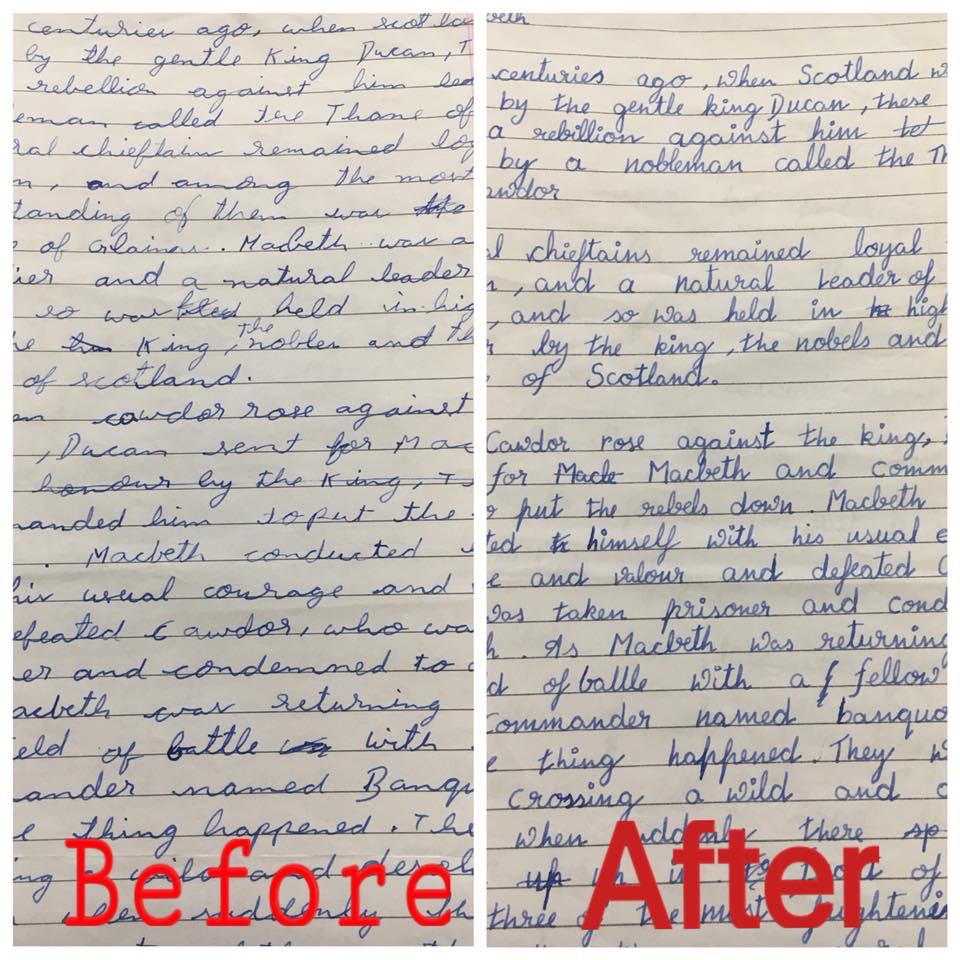 centuries ago, when scotla
by the gentle King Ducan, T
rebellion against him lea
eman called the Thane of
ral chieftain remained loy
n, and among the most
tanding of them was
of Glainas. Macbeth was a
ier and a natural leader
so was held in hig
King, the nobles and th
of scotland.
cawdor rose against
, Ducan sent for Mac
honour by the King, T
anded him to put the
. Macbeth conducted
his usual courage and
efeated Cawdor, who wa
er and condemned to
acbeth was returning
eld of battle with
ander named Banqu
e thing happened. The
ng a wild and desol
when suddenly th
Before
beth
centuries ago, when Scotland w
by the gentle king Ducan, these
a rebillion against him
by a nobleman called the Th
awdor
al chieftains remained loyal
n, and a natural Leader of
, and so was held in high
r by the king, the nobels and
of Scotland.
Cawdor rose against the king,
for Macbeth and comm
put the rebels down. Macbeth
ted himself with his usual e
e and valour and defeated C
was taken prisoner and cond
h. As Macbeth was returning
d of battle with a fellow
commander named banquo
e thing happened. They w
crossing a wild and d
when suddenly there
up of
three of the most frightenin
After